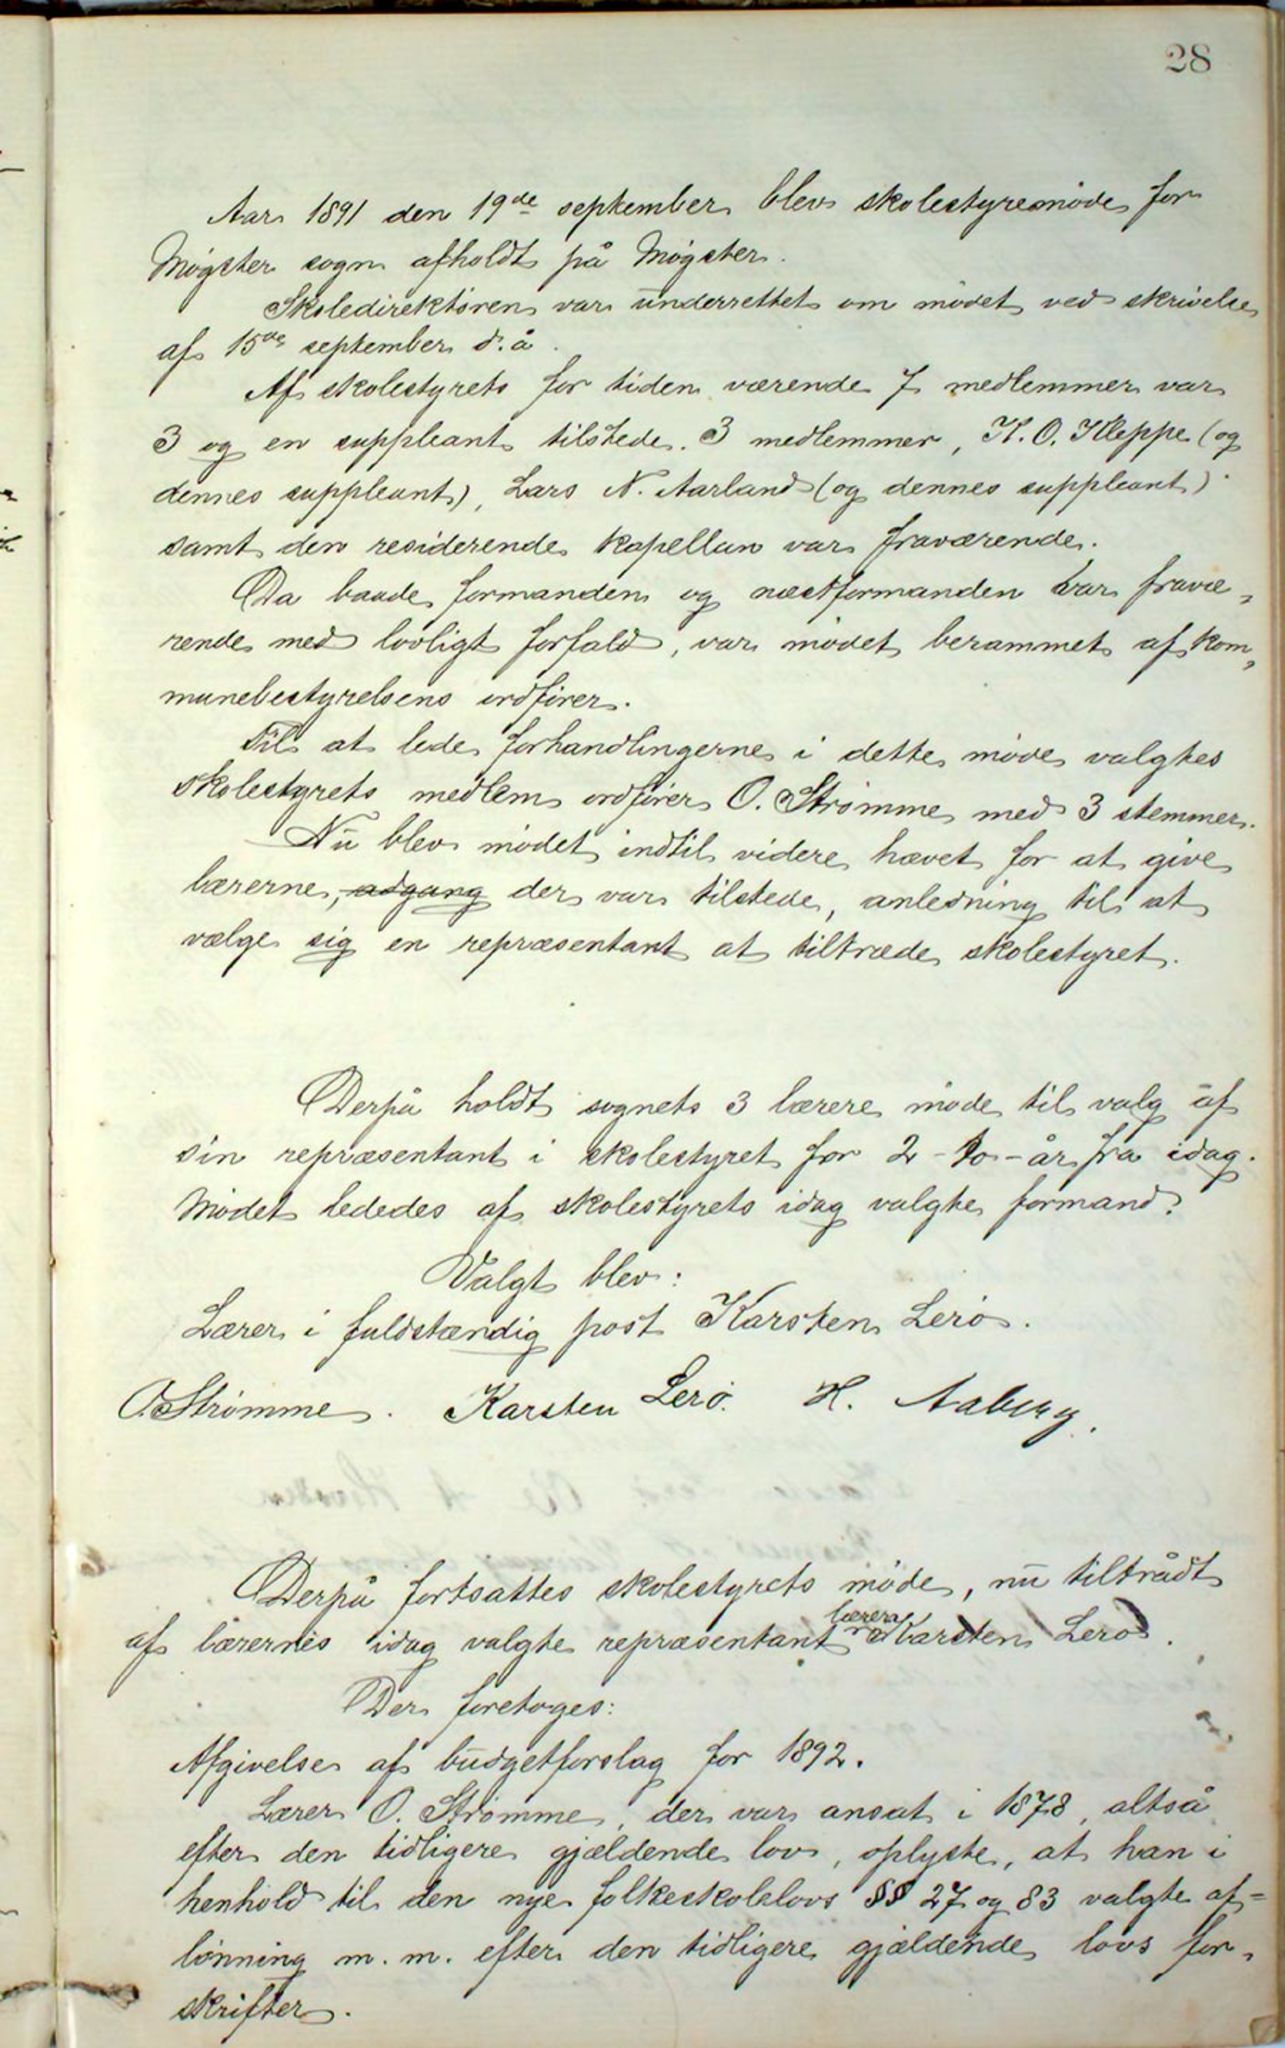 28
Aar 1891 den 19de september blev skolestyremøde for
Møgster sogn afholdt på Møgster.
Skoledirektøren var underrettet om mødet ved skrivelse
af 15de september d. å.
Af skolestyrets for tiden værende 7 medlemmer var
3 og en suppleant tilstede. 3 medlemmer, K. O. Kleppe (og
dennes suppleant), Lars N. Aarland (og dennes suppleant)
samt den residerende kapellan var fraværende.
Da baade formanden og næstformanden var fravæ-
rende med lovligt forfald, var mødet berammet af kom-
munebestyrelsens ordfører.
Til at lede forhandlingerne i dette møde valgtes
skolestyrets medlem ordfører O. Strømme med 3 stemmer.
Nu blev mødet indtil videre hævet for at give
lærerne, adgang der var tilstede, anledning til at
vælge sig en repræsentant at tiltræde skolestyret.
Derpå holdt sognets 3 lærere møde til valg af
sin repræsentant i skolestyret for 2 - to - år fra idag.
Mødet lededes af skolestyrets idag valgte formand.
Valgt blev:
Lærer i fuldstændig post Karsten Lerø.
O. Strømme. Karsten Lerø. H. Aaberg.
Derpå fortsattes skolestyrets møde, nu tiltrådt
af lærernes idag valgte repræsentant lærer Karsten Lerø.
Der foretoges:
Afgivelse af budgetforslag for 1892.
Lærer O. Strømme, der var ansat i 1878, altså
efter den tidligere gjældende lov, oplyste, at han i
henhold til den nye folkeskolelovs §§ 27 og 83 valgte af=
lønning m. m. efter den tidligere gjældende lovs for-
skrifter.